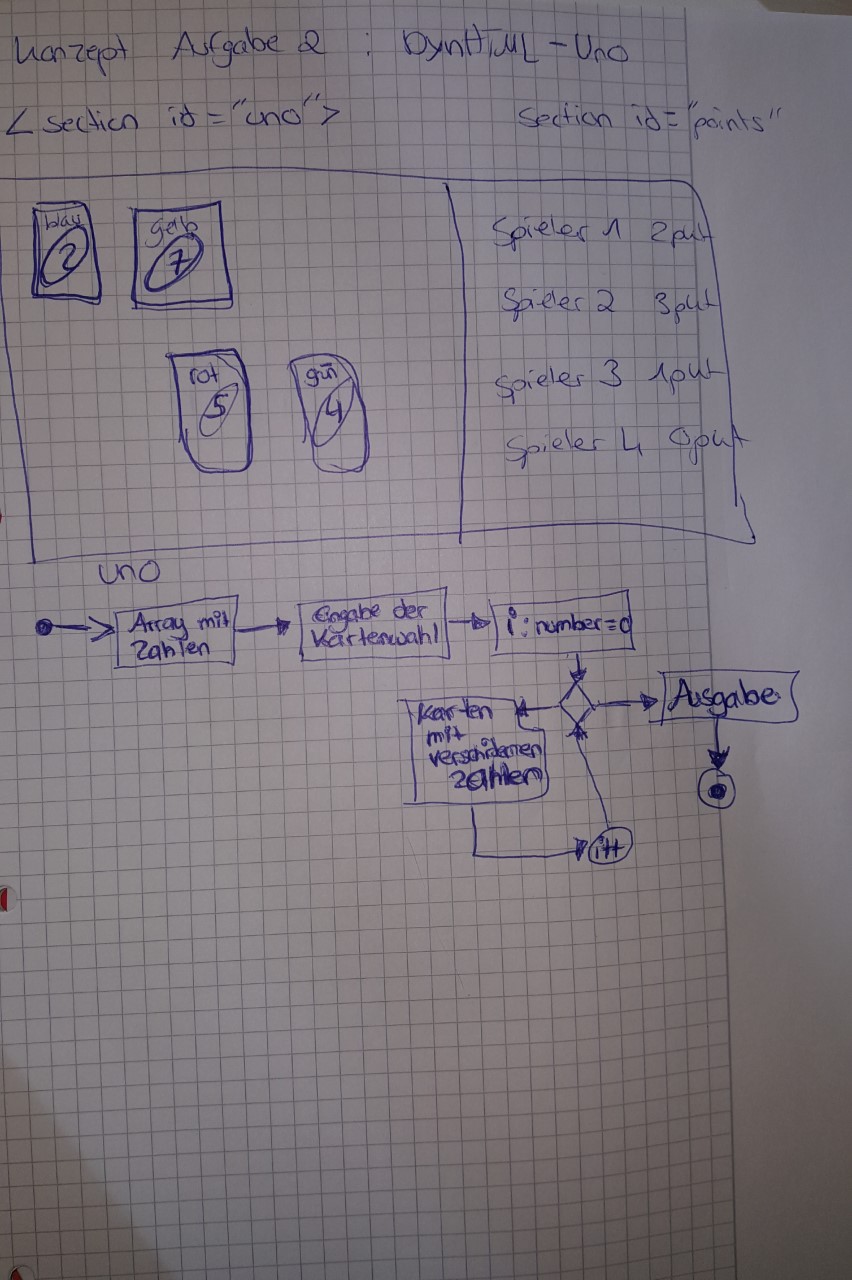 Konzept Aufgabe 2 : DynHTML - Uno
< section id = "uno" >
section id = "points"
blau
2
gelb
7
rot
5
grün
4
Spieler 1 2 pkt
Spieler 2 3 pkt
Spieler 3 1 pkt
Spieler 4 0 pkt
uno
Array mit
Zahlen
Eingabe der
Kartenwahl
i : number = 0
Karten
mit
verschidenen
Zahlen
Ausgabe
i++